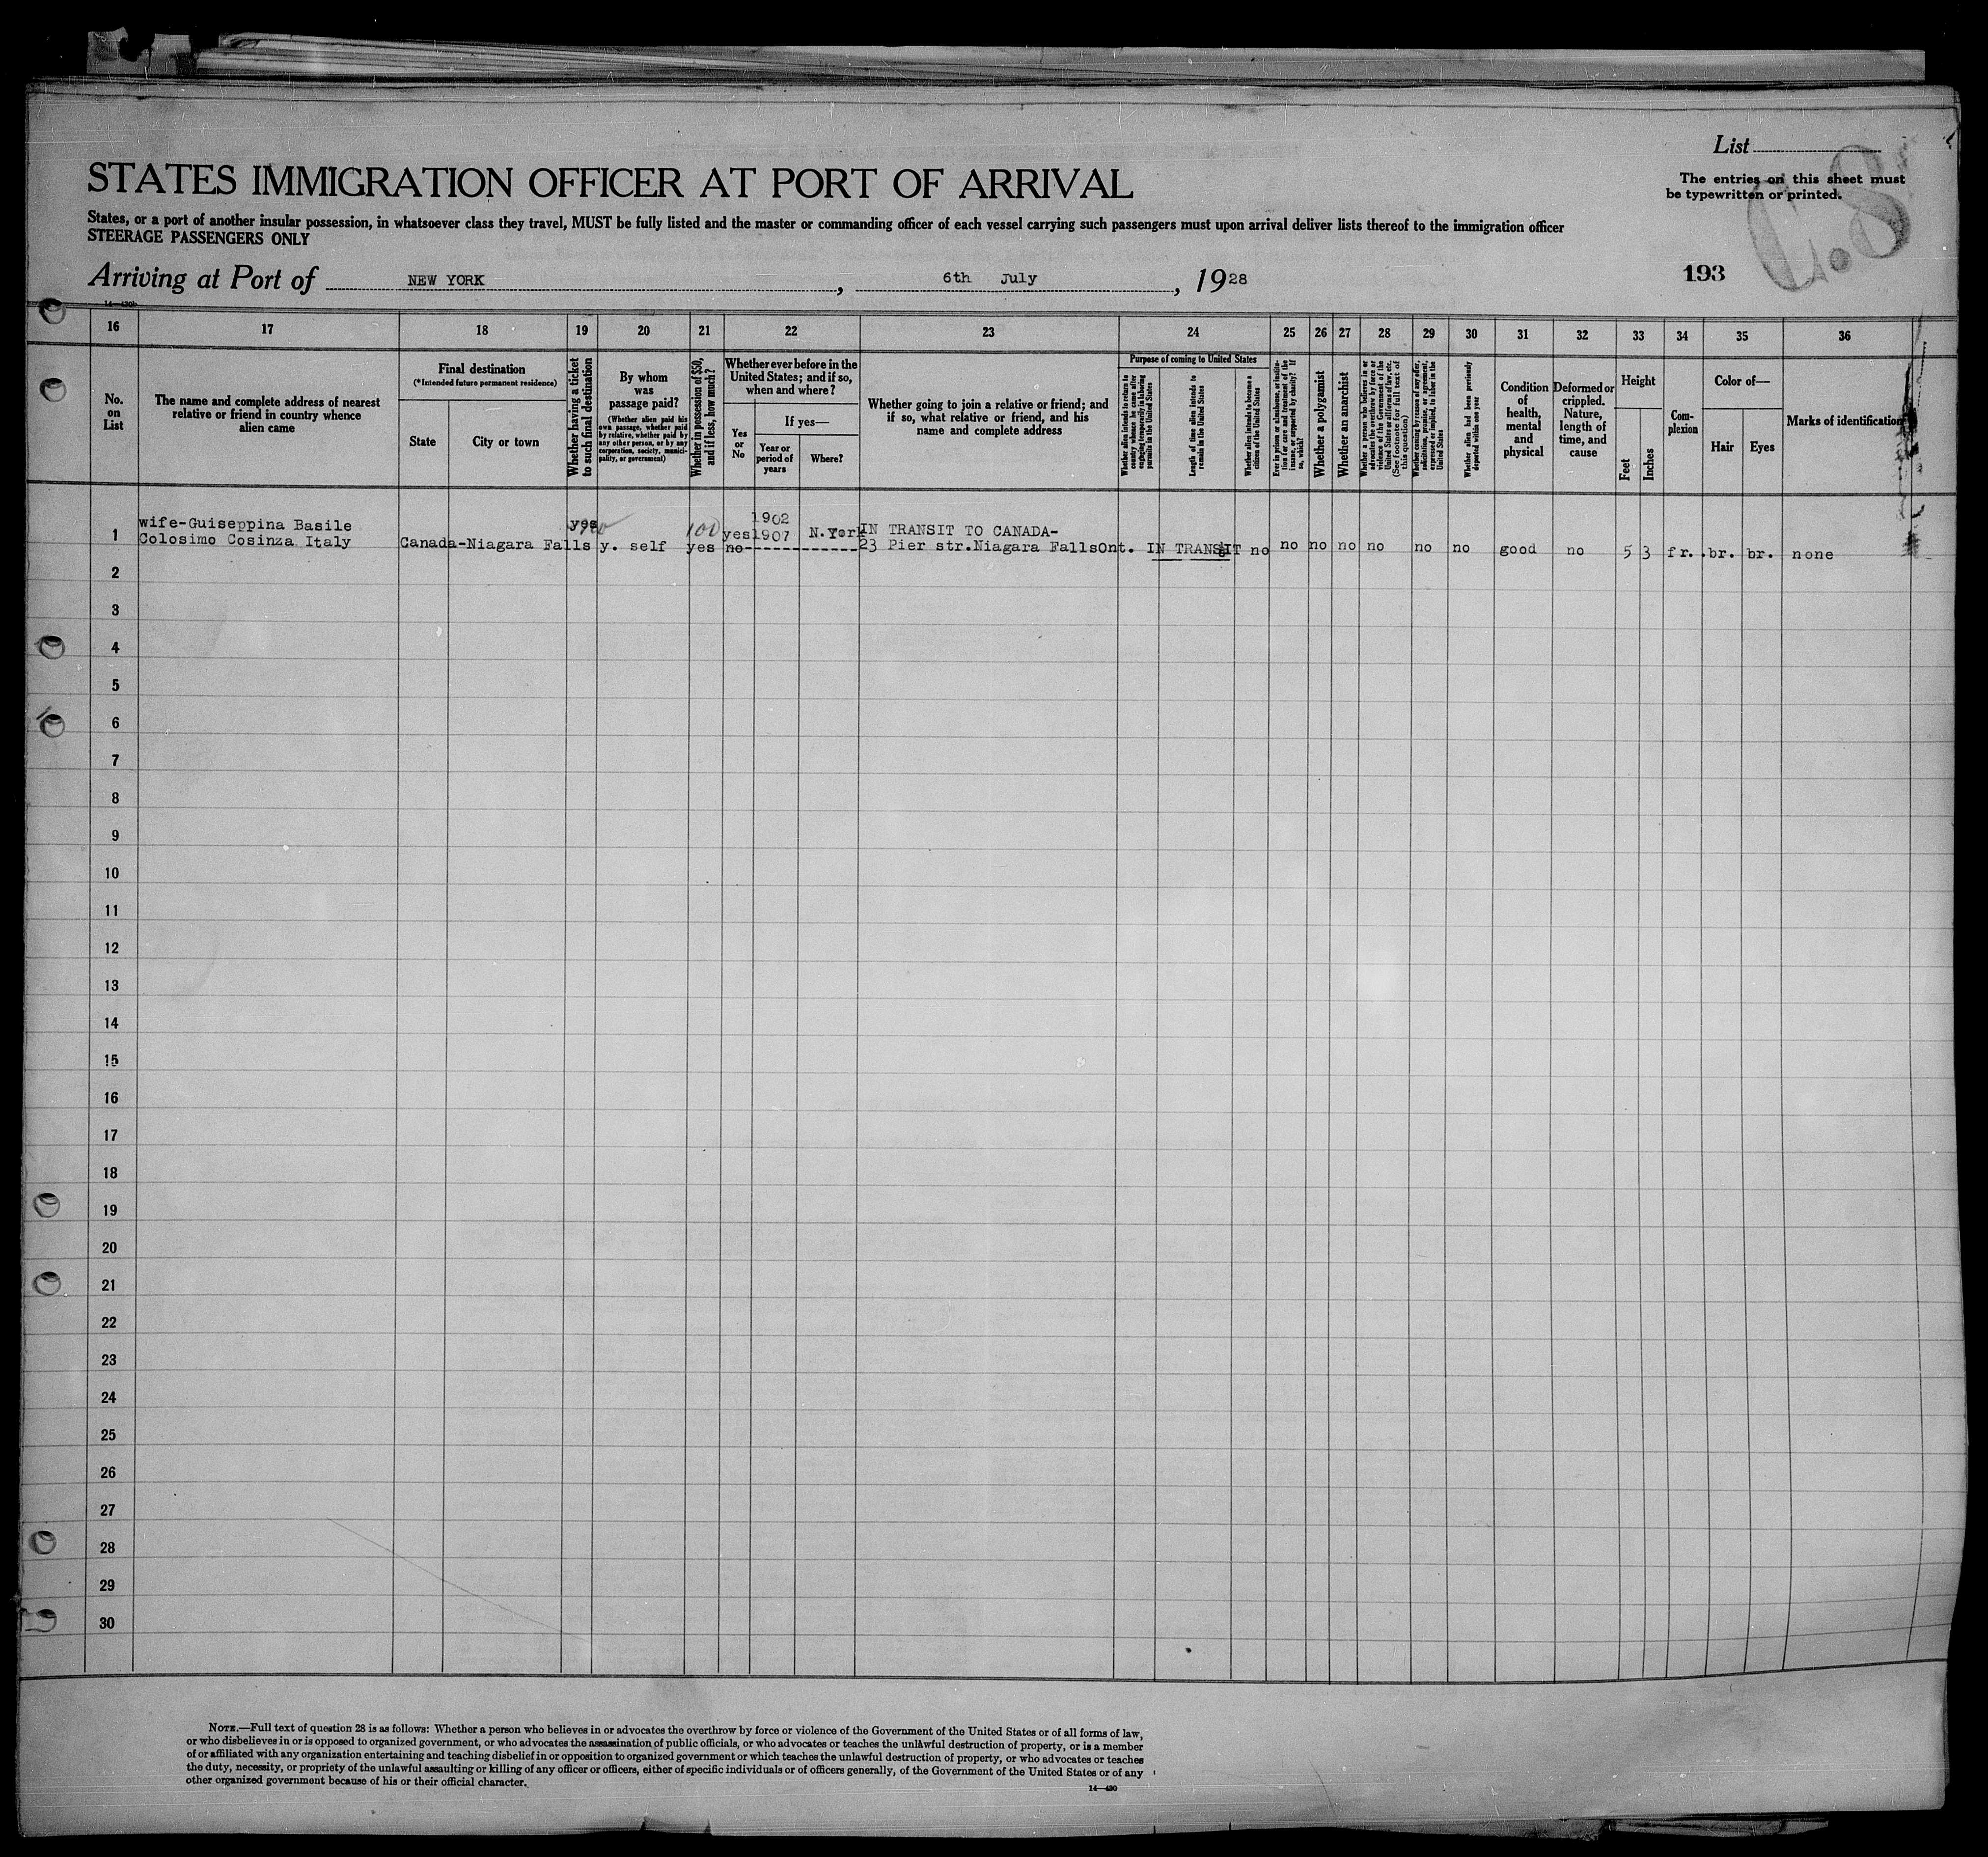 List
STATES IMMIGRATION OFFICER AT PORT OF ARRIVAL
The entries on this sheet must
be typewritten or printed.
C.8
States, or a port of another insular possession, in whatsoever class they travel, MUST be fully listed and the master or commanding officer of each vessel carrying such passengers must upon arrival deliver lists thereof to the immigration officer
STEERAGE PASSENGERS ONLY
Arriving at Port of NEW YORK, 6th July, 1928
193
14—430b
16 17 18 19 20 21 22 23 24 25 26 27 28 29 30 31 32 33 34 35 36
No. on List
The name and complete address of nearest relative or friend in country whence alien came
Final destination
(*Intended future permanent residence)
State
City or town
Whether having a ticket to such final destination
By whom was passage paid?
(Whether alien paid his own passage, whether paid by relative, whether paid by any other person, or by any corporation, society, municipality, or government)
Whether in possession of $50, and if less, how much?
Whether ever before in the United States; and if so, when and where?
Yes or No
If yes—
Year or period of years
Where?
Whether going to join a relative or friend; and if so, what relative or friend, and his name and complete address
Purpose of coming to United States
Whether alien intends to return to country whence he came after engaging temporarily in laboring pursuits in the United States
Length of time alien intends to remain in the United States
Whether alien intends to become a citizen of the United States
Ever in prison or almshouse, or institution for care and treatment of the insane, or supported by charity? If so, which?
Whether a polygamist
Whether an anarchist
Whether a person who believes in or advocates the overthrow by force or violence of the Government of the United States or all forms of law, etc. (See footnote for full text of this question)
Whether coming by reason of any offer, solicitation, promise, or agreement, expressed or implied, to labor in the United States
Whether alien had been previously deported within one year
Condition of health, mental and physical
Deformed or crippled. Nature, length of time, and cause
Height
Feet
Inches
Complexion
Color of—
Hair
Eyes
Marks of identification
1
wife-Guiseppina Basile
Colosimo Cosinza Italy
Canada-Niagara Falls
yes
y. self
100
yes
yes
no
1902
1907
N.York
IN TRANSIT TO CANADA-
23 Pier str.Niagara FallsOnt.
IN TRANSIT no no no no no no no good no 5 3 fr. br. br. none
2
3
4
5
6
7
8
9
10
11
12
13
14
15
16
17
18
19
20
21
22
23
24
25
26
27
28
29
30
NOTE.—Full text of question 28 is as follows: Whether a person who believes in or advocates the overthrow by force or violence of the Government of the United States or of all forms of law,
or who disbelieves in or is opposed to organized government, or who advocates the assassination of public officials, or who advocates or teaches the unlawful destruction of property, or is a member
of or affiliated with any organization entertaining and teaching disbelief in or opposition to organized government or which teaches the unlawful destruction of property, or who advocates or teaches
the duty, necessity, or propriety of the unlawful assaulting or killing of any officer or officers, either of specific individuals or of officers generally, of the Government of the United States or of any
other organized government because of his or their official character.
14—430